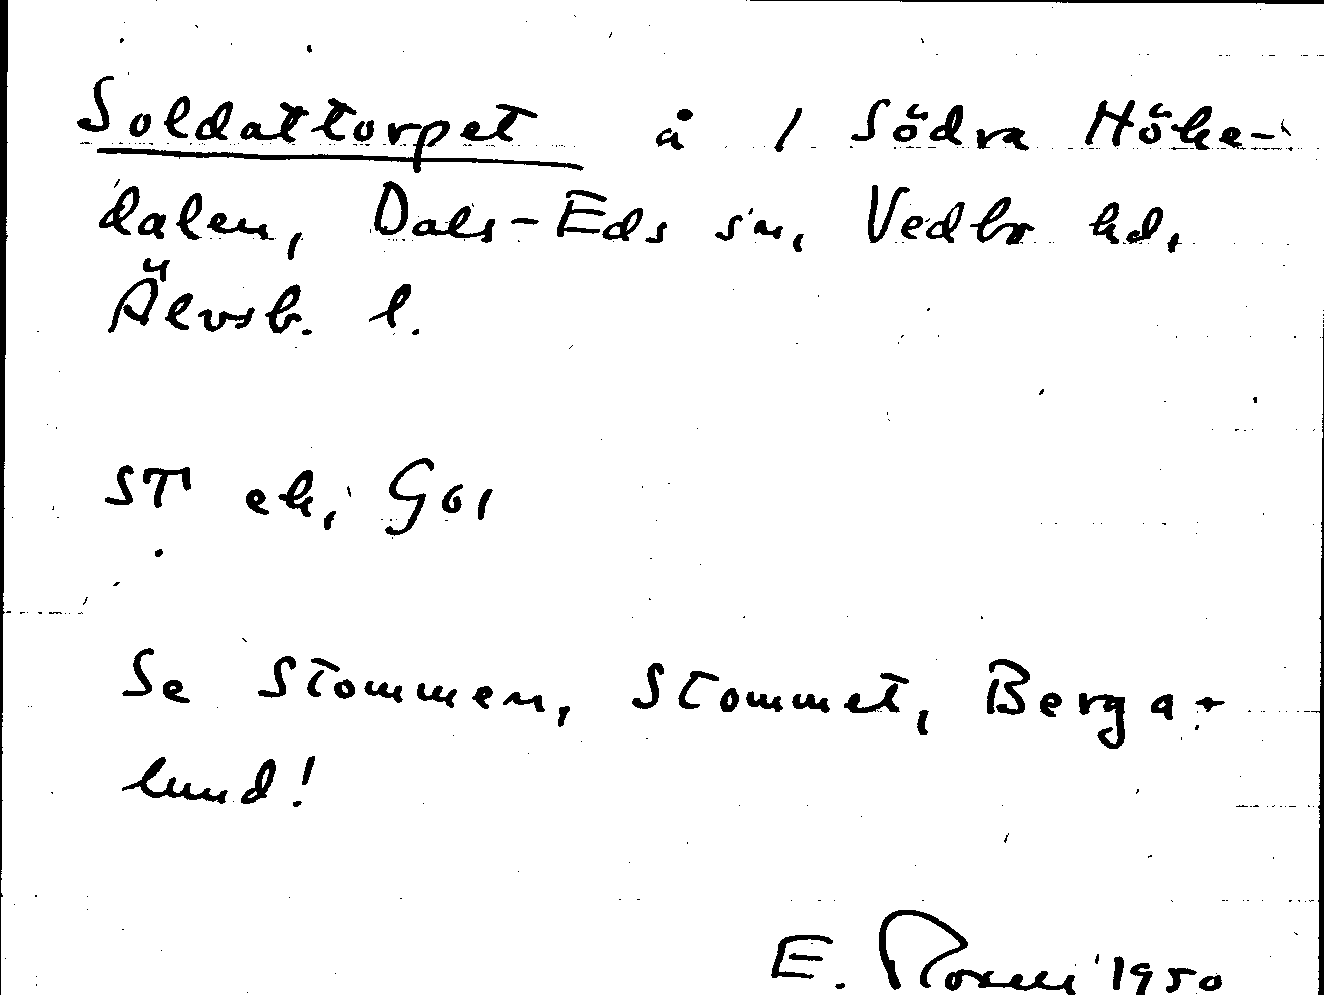 Soldattorpet å 1 Södra Höke-
dalen, Dals-Eds sn, Vedbo hd,
Älvsb. l.
ST ek, G01
Se Stommen, Stommet, Berga-
lund!
E. Rosell 1950